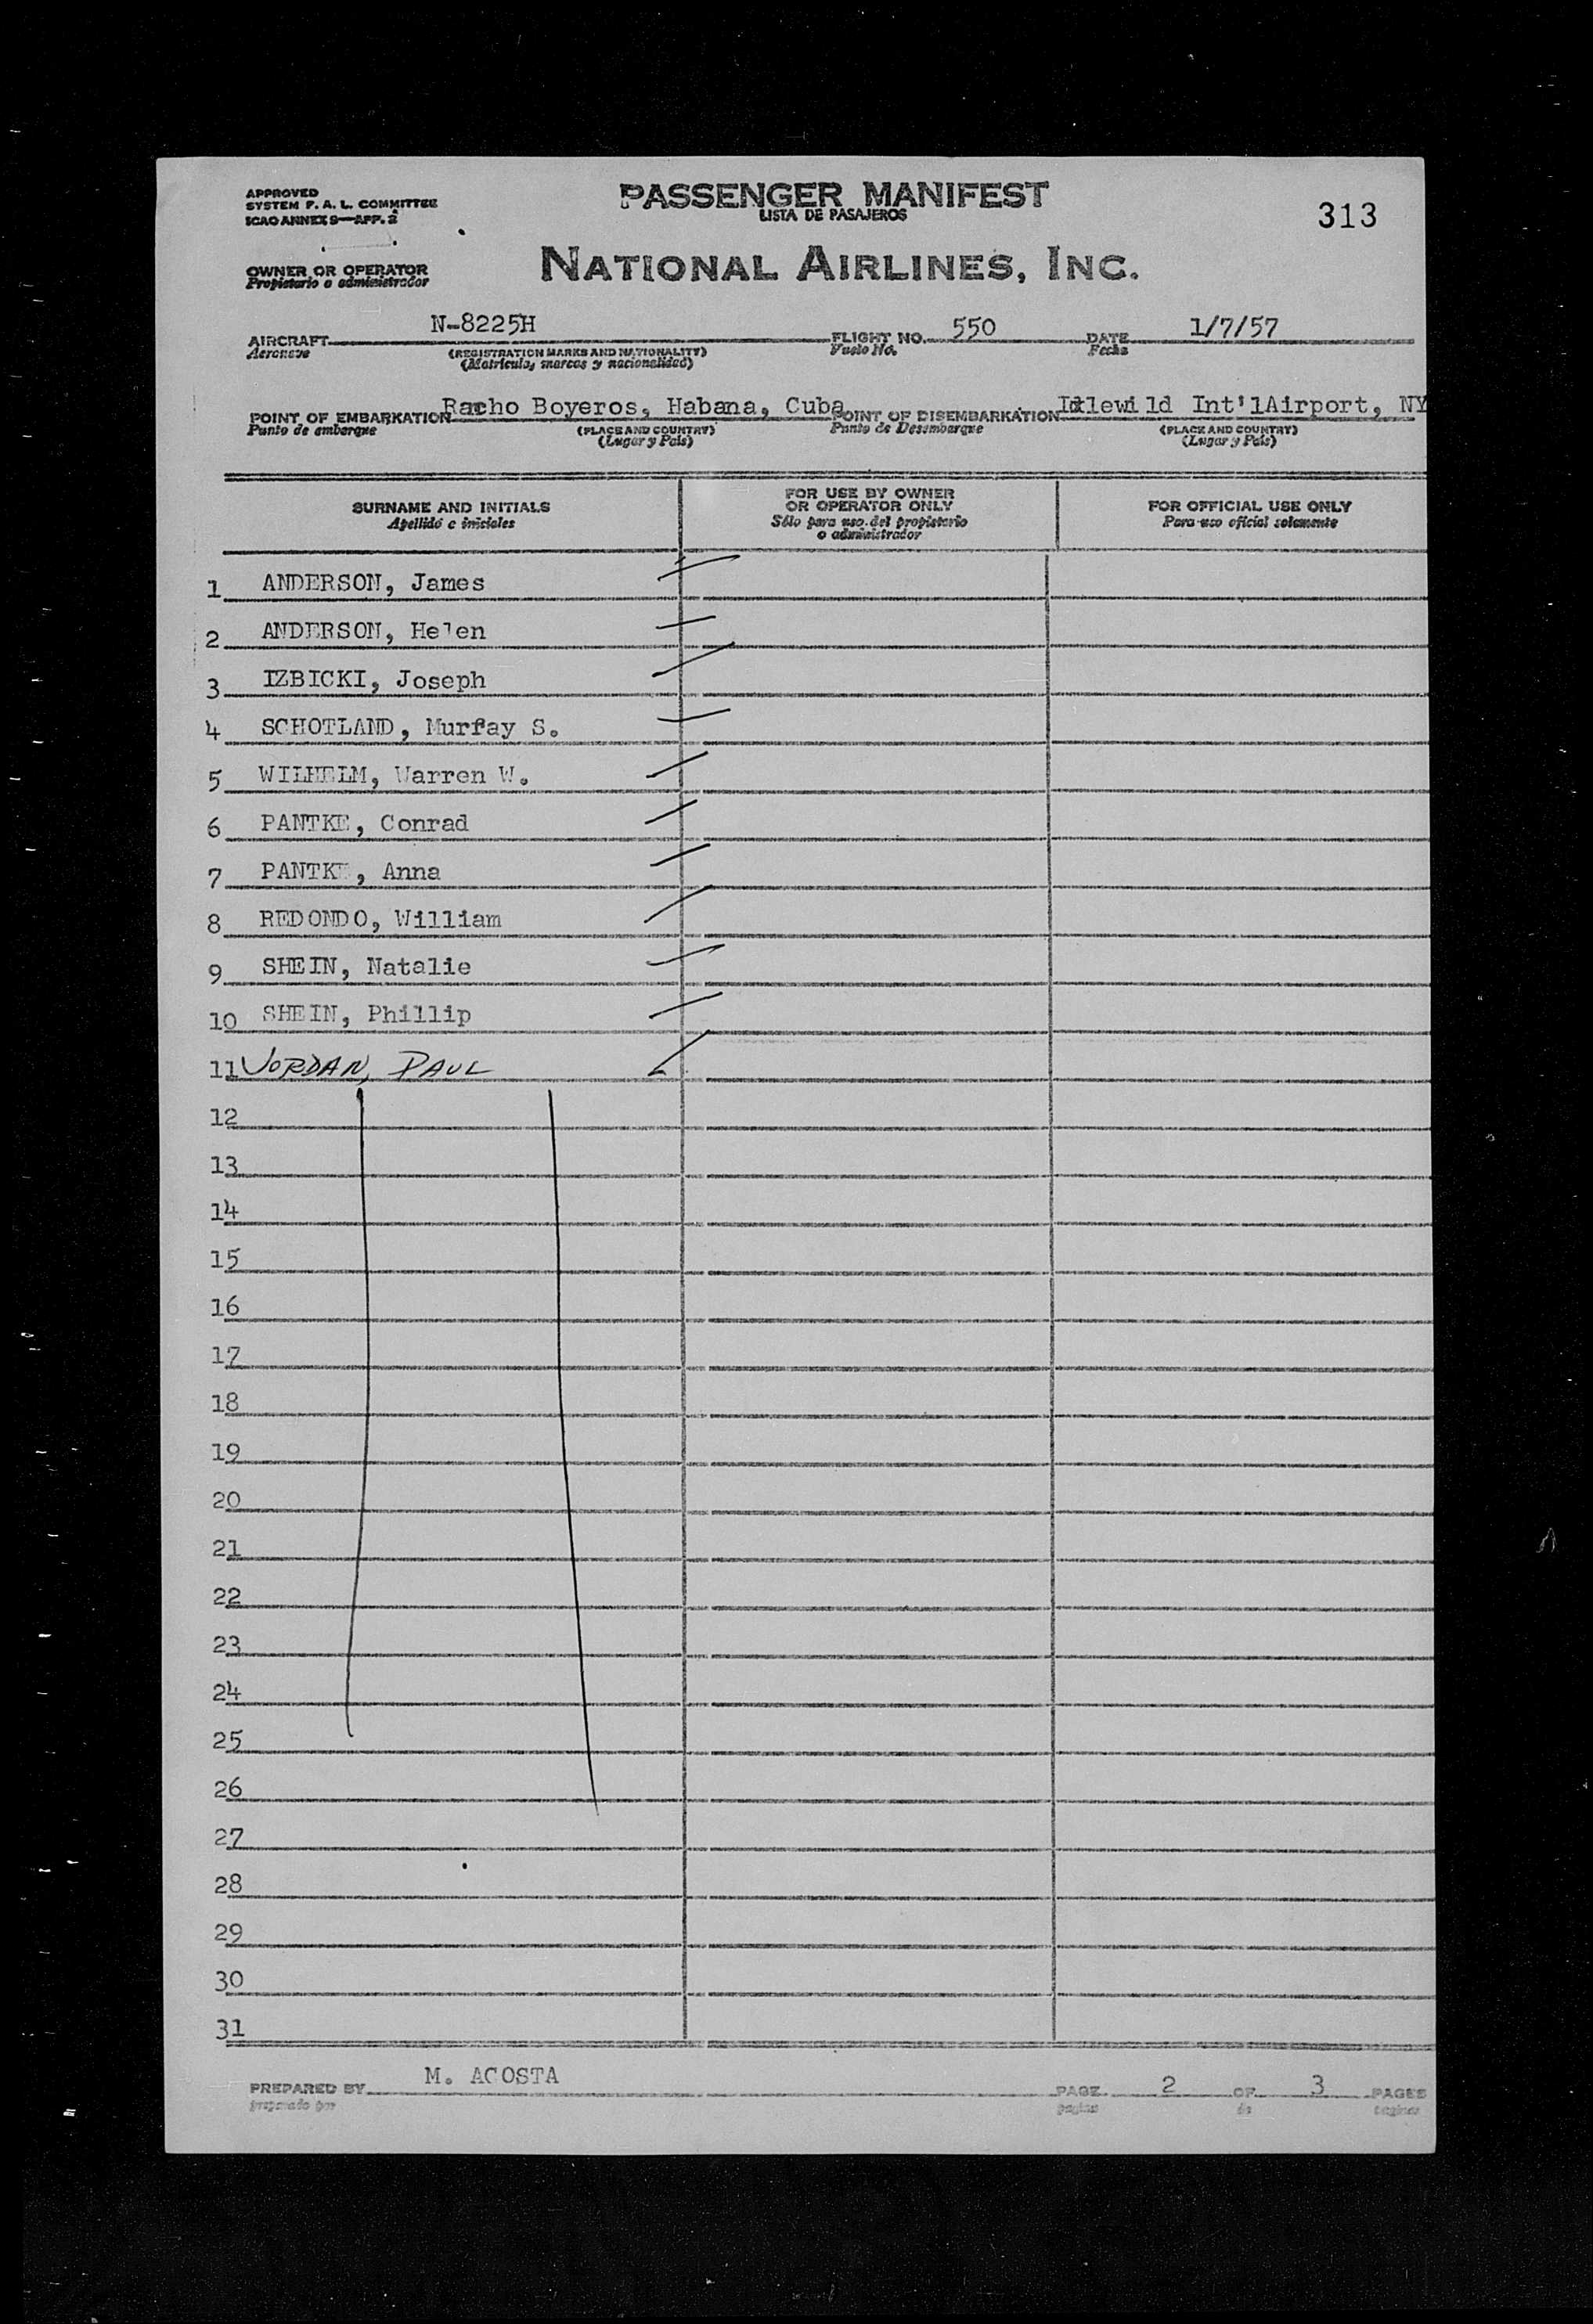 APPROVED
SYSTEM F. A. L. COMMITTEE
ICAO ANNEX 9—APP. 2
PASSENGER MANIFEST
LISTA DE PASAJEROS
313
OWNER OR OPERATOR
Propietario o administrador
NATIONAL AIRLINES, INC.
AIRCRAFT N-8225H FLIGHT NO. 550 DATE 1/7/57
Aeronave (REGISTRATION MARKS AND NATIONALITY) Vuelo No. Fecha
(Matricula, marcas y nacionalidad)
POINT OF EMBARKATION Racho Boyeros, Habana, Cuba POINT OF DISEMBARKATION Idlewild Int'lAirport, NY
Punto de embarque (PLACE AND COUNTRY) Punto de Desembarque (PLACE AND COUNTRY)
(Lugar y País) (Lugar y País)
SURNAME AND INITIALS
Apellido e iniciales
FOR USE BY OWNER
OR OPERATOR ONLY
Sólo para uso del propietario
o administrador
FOR OFFICIAL USE ONLY
Para uso oficial solamente
1 ANDERSON, James
2 ANDERSON, Helen
3 IZBICKI, Joseph
4 SCHOTLAND, Murray S.
5 WILHELM, Warren W.
6 PANTKE, Conrad
7 PANTKE, Anna
8 REDONDO, William
9 SHEIN, Natalie
10 SHEIN, Phillip
11 JORDAN, PAUL
12
13
14
15
16
17
18
19
20
21
22
23
24
25
26
27
28
29
30
31
PREPARED BY M. ACOSTA PAGE 2 OF 3 PAGES
preparado por pagina de paginas